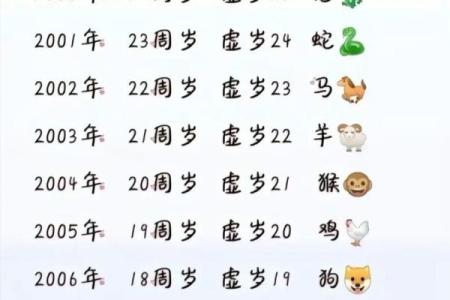 2001年 23周岁 虚岁24 蛇
2002年 22周岁 虚岁23 马
2003年 21周岁 虚岁22 羊
2004年 20周岁 虚岁21 猴
2005年 19周岁 虚岁20 鸡
2006年 18周岁 虚岁19 狗